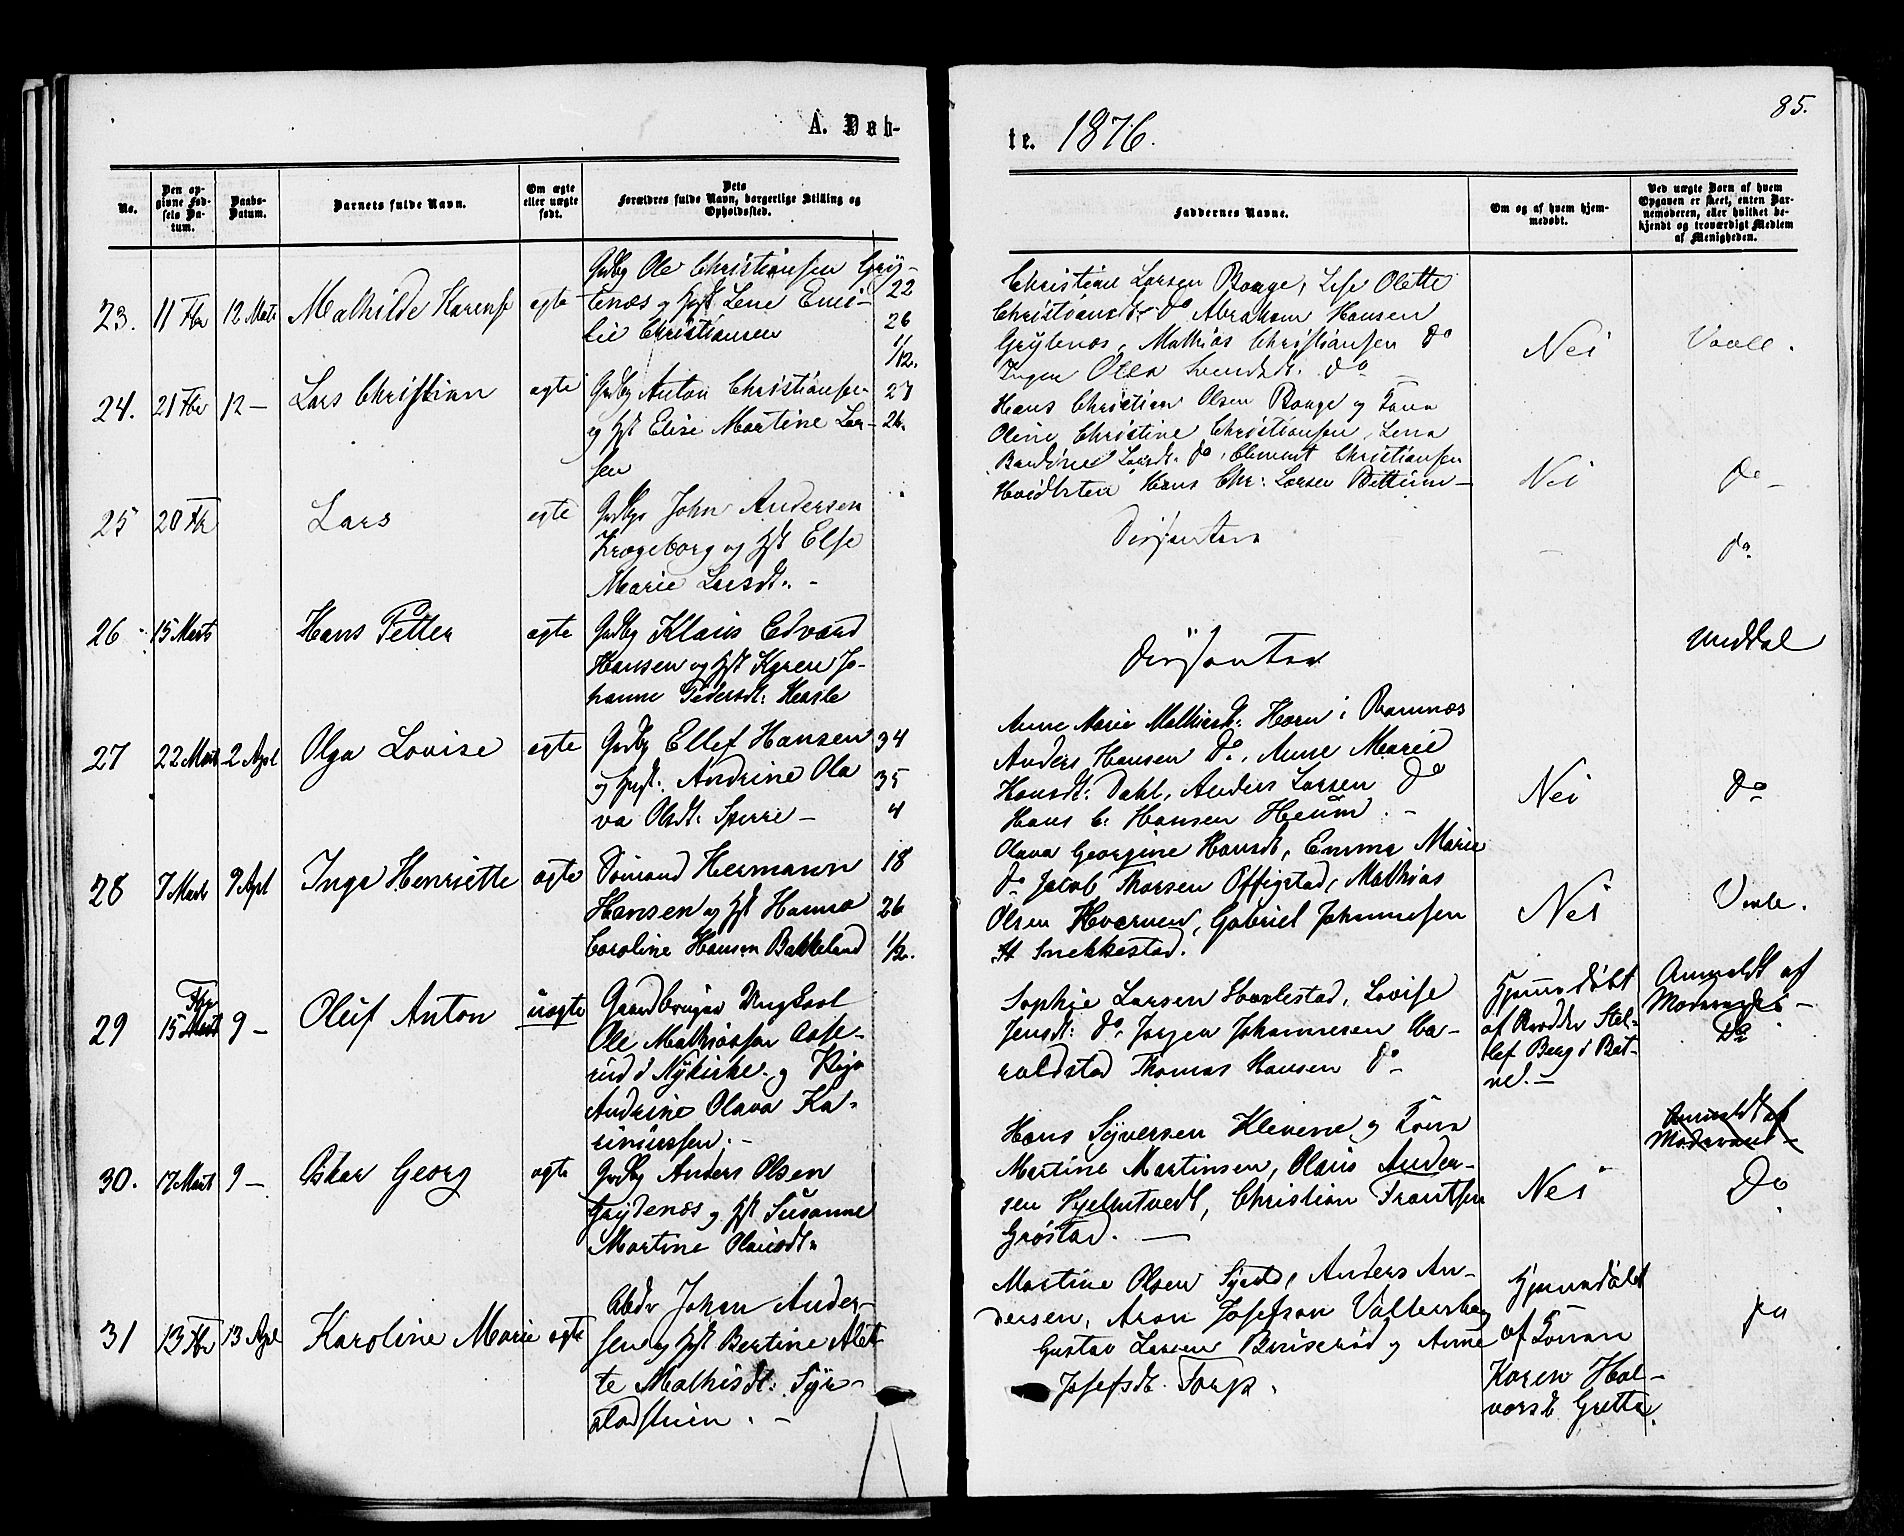 85.
A. Døb-
te. 1876.
No.
Den op-
givne Fød-
sels Da-
tum.
Daabs-
Datum.
Barnets fulde Navn.
Om ægte
eller uægte
født.
Dets
Forældres fulde Navn, borgerlige Stilling og
Opholdssted.
Faddernes Navne.
Om og af hvem hjem-
medøbt.
Ved uægte Børn af hvem
Opgaven er skeet, enten Bar-
nemoderen, eller hvilket be-
kjendt og troværdigt Medlem
af Menigheden.
23. 11 Fbr 12 Mats Mathilde Karense egte
Gdbg Ole Christiansen Gry-
tenæs og Hst Lene Emi-
lie Christiansen
22
26
1/12.
Christian Larsen Borge, Lise Olette
Christiansdt. do Abraham Hansen
Grytenæs, Mathias Christiansen do
Inger Olea Svendsdt. do
Nei
Vaale.
24. 21 Fbr 12 – Lars Christian egte
Gdbg Anton Christiansen
og Hst Elise Martine Lar-
sen
27
26.
Hans Christian Olsen Borge og Kona
Oline Christine Christiansen, Lena
Larsdt. do, Clement Christiansen
Hvidsten Hans Chr: Larsen
Nei
do –
25 20 Fbr Lars egte
Gdbg John Andersen
Krogeborg og Hst Else
Marie Larsdt. –
–
do
26 15 Marts Hans Petter egte
Gdbg Klaus Edvard
Hansen og Hst Karen Jo-
hanne Pedersdt:
27 22 Mart 2 Apl Olga Lovise egte
Gdbg Ellef Hansen
og Hust. Andrine Ola
va Olsdt: Sperre –
34
35
4
Anne Marie Mathisdt: Horn i Ramnæs
Anders Hansen do, Anne Marie
Hansdt: Dahl, Anders Larsen do
Hans C: Hansen Heum. –
Nei
do
28 7 Marts 9 Apl Inga Henriette egte
Sømand Hermann
Hansen og Hst Hanna
Caroline Hansen Bakkeland
18
26
1/12.
Olava Georgine Hansdt, Emma Marie
do Jacob Thorsen Offigstad, Mathias
Olsen Hvernen, Gabriel Johannesen
St Snekkestad.
Nei
Vaale.
29 Fbr
15 Mart 9 – Oluf Anton uægte
Gaardbruger Ungkarl
Ole Mathiassen Aase-
rud i Nykirke og Pige
Andrine Olava Ka-
rinussen. –
Sophie Larsen Haarlestad, Lovise
Jensdt: do, Jørgen Johannesen Ha-
raldstad Thomas Hansen do –
Hjemmedøbt
Anmeldt af
do
30. 17 Mart 9 – Oskar Georg egte
Gdbg Anders Olsen
Grydenæs og Hst Susanne
Martine Olausdt.
Hans Syversen Klevene og Kona
Martine Martinsen, Olaus Ander-
sen Hjelmtvedt, Christian Frantsen
Grøstad. –
Nei
Anmeldt af
do
31 13 Fbr 13 Apl Karoline Marie egte
Abdr Johan Ander-
sen og Hst Bertine Alet-
te Mathisdt:
Martine Olsen Anders An-
dersen, Aron Josefson Vallersberg
Gustav Larsen Bruserød og Anne
Josefsdt. Torp.
Hjemmedøbt
af Konen
Karen Hal-
vorsdt Gretta.
do